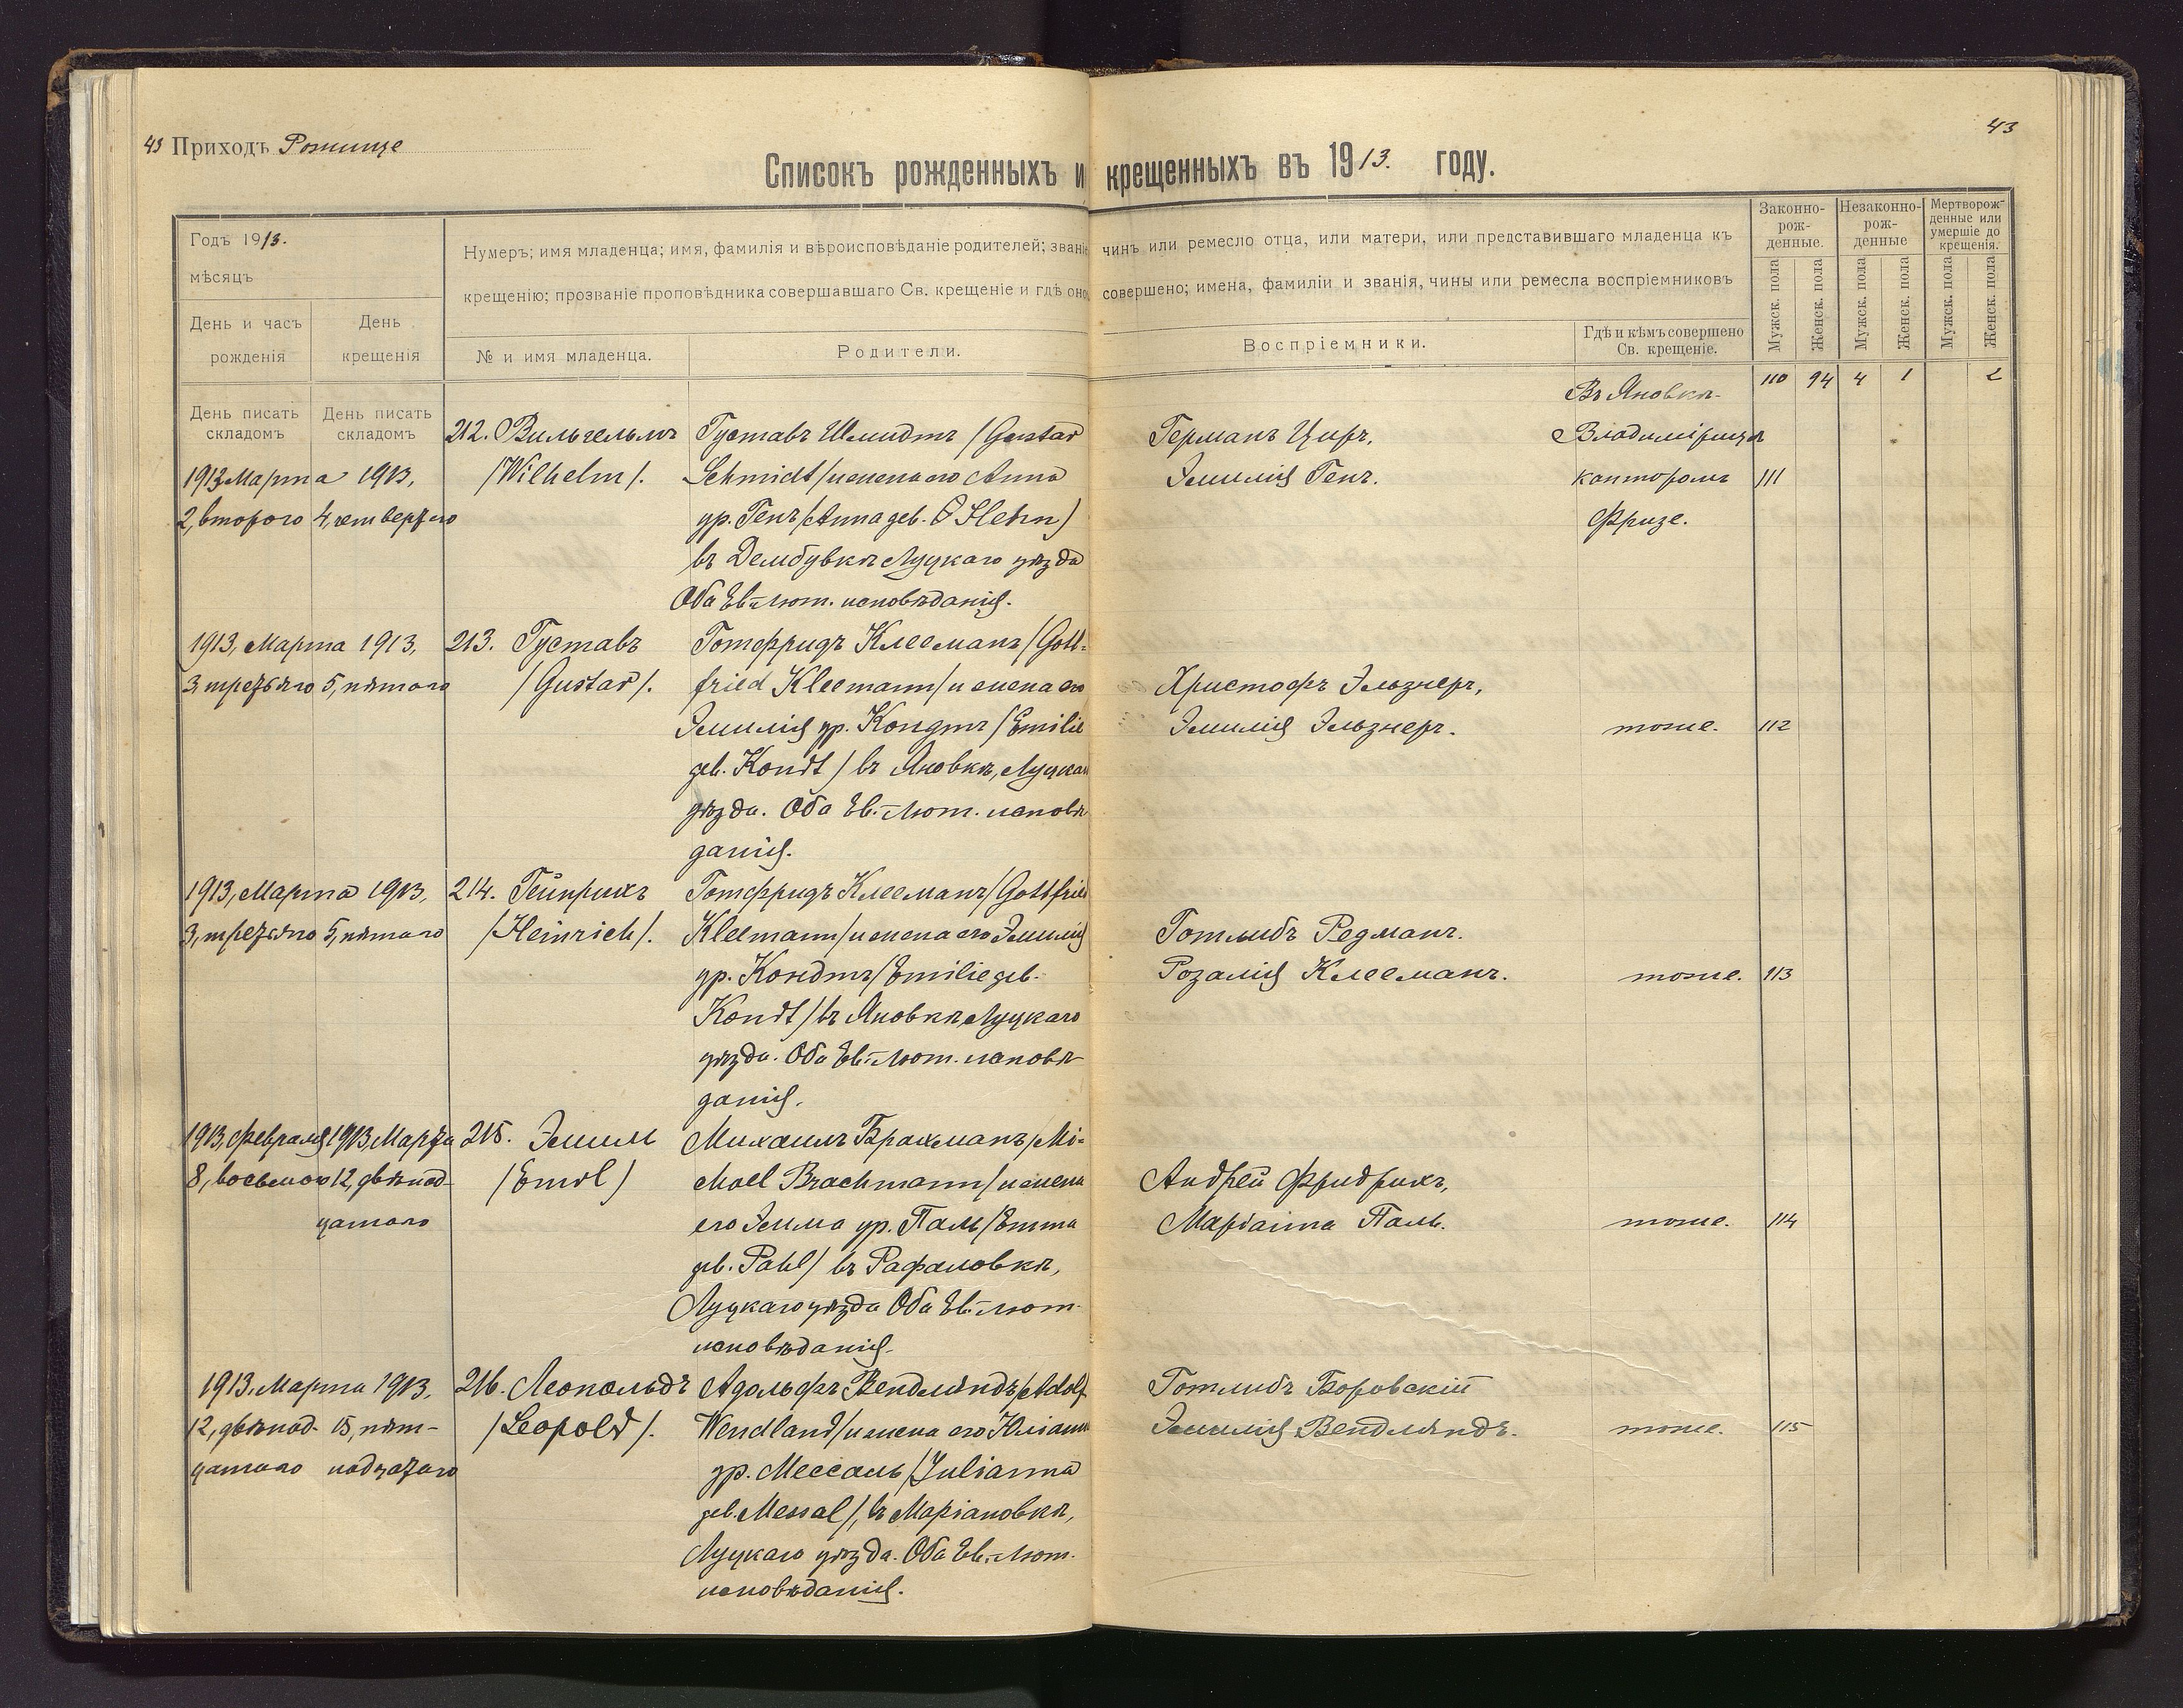 43 Приходъ Рожище
43
Списокъ рожденныхъ и крещенныхъ въ 1913. году.
Годъ 1913.
мѣсяцъ
День и часъ рожденія
День крещенія
Нумеръ; имя младенца; имя, фамилія и вѣроисповѣданіе родителей; званіе чинъ или ремесло отца, или матери, или представившаго младенца къ
крещенію; прозваніе проповѣдника совершавшаго Св. крещеніе и гдѣ оно совершено; имена, фамиліи и званія, чины или ремесла воспріемниковъ
№ и имя младенца.
Родители.
Воспріемники.
Гдѣ и кѣмъ совершено
Св. крещеніе.
Законно-
рож-
денные.
Незаконно-
рож-
денные
Мертворож-
денные или
умершіе до
крещенія.
Мужск. пола
Женск. пола
Мужск. пола
Женск. пола
Мужск. пола
Женск. пола
110 94 4 1 2
День писать складомъ
День писать складомъ
1913 Марта 1913,
2, второго 4, четвертаго
212. Вильгельмъ
/Wilhelm/.
Густавъ Шмидтъ /Gustav
Schmidt/ и жена его Анна
ур. Генъ /Anna geb. Hehn/
въ Дембувкѣ Луцкаго уѣзда
Оба Ев.-Лют. исповѣданія.
Германъ Циръ,
Эмилія Генъ.
Въ Яновкѣ
канторомъ
Фризе.
111
1913, Марта 1913,
3, третьяго 5, пятаго
213. Густавъ
/Gustav/.
Готфридъ Клееманъ /Gott-
fried Kleemann/ и жена его
Эмилія ур. Кондтъ /Emilie
geb. Kondt/ въ Яновкѣ, Луцкаго
уѣзда. Оба Ев.-Лют. исповѣ-
данія.
Христофъ Эльзнеръ,
Эмилія Эльзнеръ.
тоже.
112
1913, Марта 1913,
3, третьяго 5, пятаго
214. Гейнрихъ
/Heinrich/.
Готфридъ Клееманъ /Gottfried
Kleemann/ и жена его Эмилія
ур. Кондтъ /Emilie geb.
Kondt/ въ Яновкѣ Луцкаго
уѣзда. Оба Ев.-Лют. исповѣ-
данія.
Готлибъ Редманъ.
Розалія Клееманъ.
тоже.
113
1913, Февраля 1913 Марта
8, восьмого 12, двѣнад-
цатаго
215. Эмиль
/Emil/
Михаилъ Брахманъ /Mi-
chael Brachmann/ и жена
его Эмма ур. Паль /Emma
geb. Pahl/ въ Рафаловкѣ,
Луцкаго уѣзда Оба Ев.-Лют.
исповѣданія.
Андрей Фридрихъ,
Маріанна Паль.
тоже.
114
1913, Марта 1913,
12, двѣнад- 15, пят-
цатаго надцатаго
216. Леопольдъ
/Leopold/.
Адольфъ Вендляндъ /Adolf
Wendland/ и жена его Юліанна
ур. Мессаль /Julianna
geb. Messal/, въ Маріановкѣ,
Луцкаго уѣзда. Оба Ев.-Лют.
исповѣданія.
Готлибъ Боровскій
Эмилія Вендляндъ.
тоже.
115